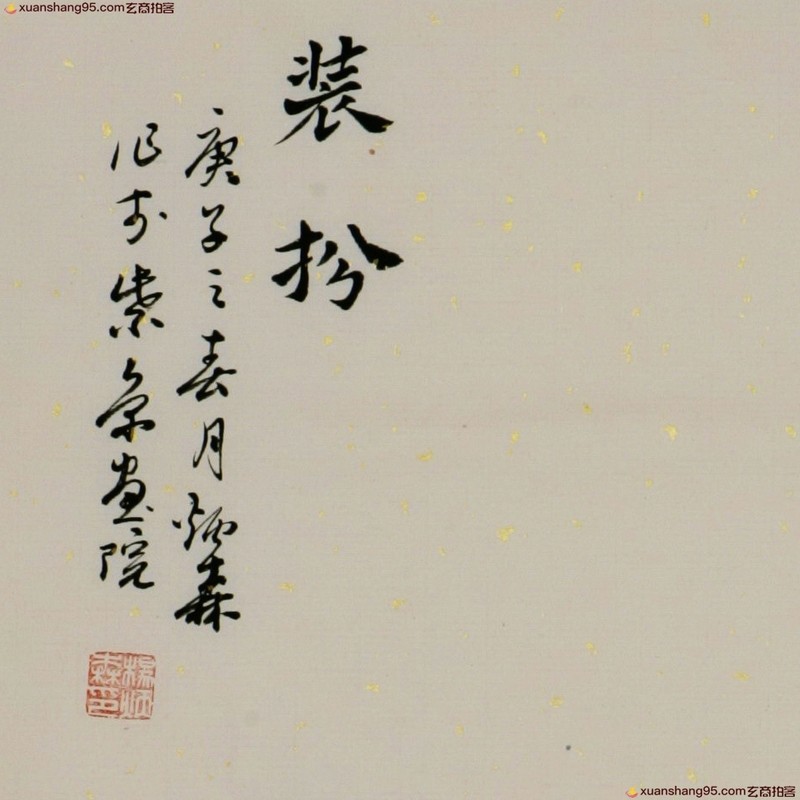 xuanshang95.com玄商拍客
装扮
庚子之春月炳森
作于紫画院
楊炳森印
xuanshang95.com玄商拍客